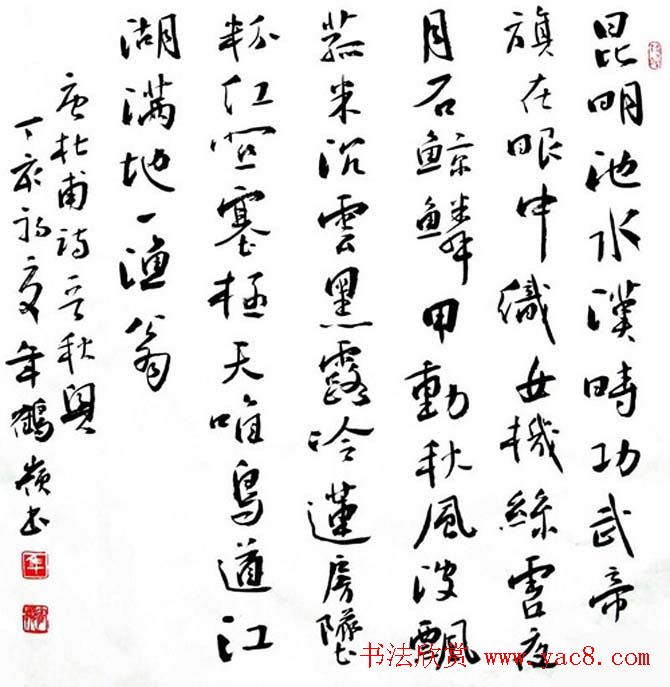 昆明池水漢時功武帝
旗在眼中織女機絲虛夜
月石鯨鱗甲動秋風波飄
菰米沉雲黑露冷蓮房墜
粉紅關塞極天唯鳥道江
湖滿地一漁翁
唐杜甫詩秋興
丁亥初夏年鶴嶺書
年
书法欣赏 www.yac8.com